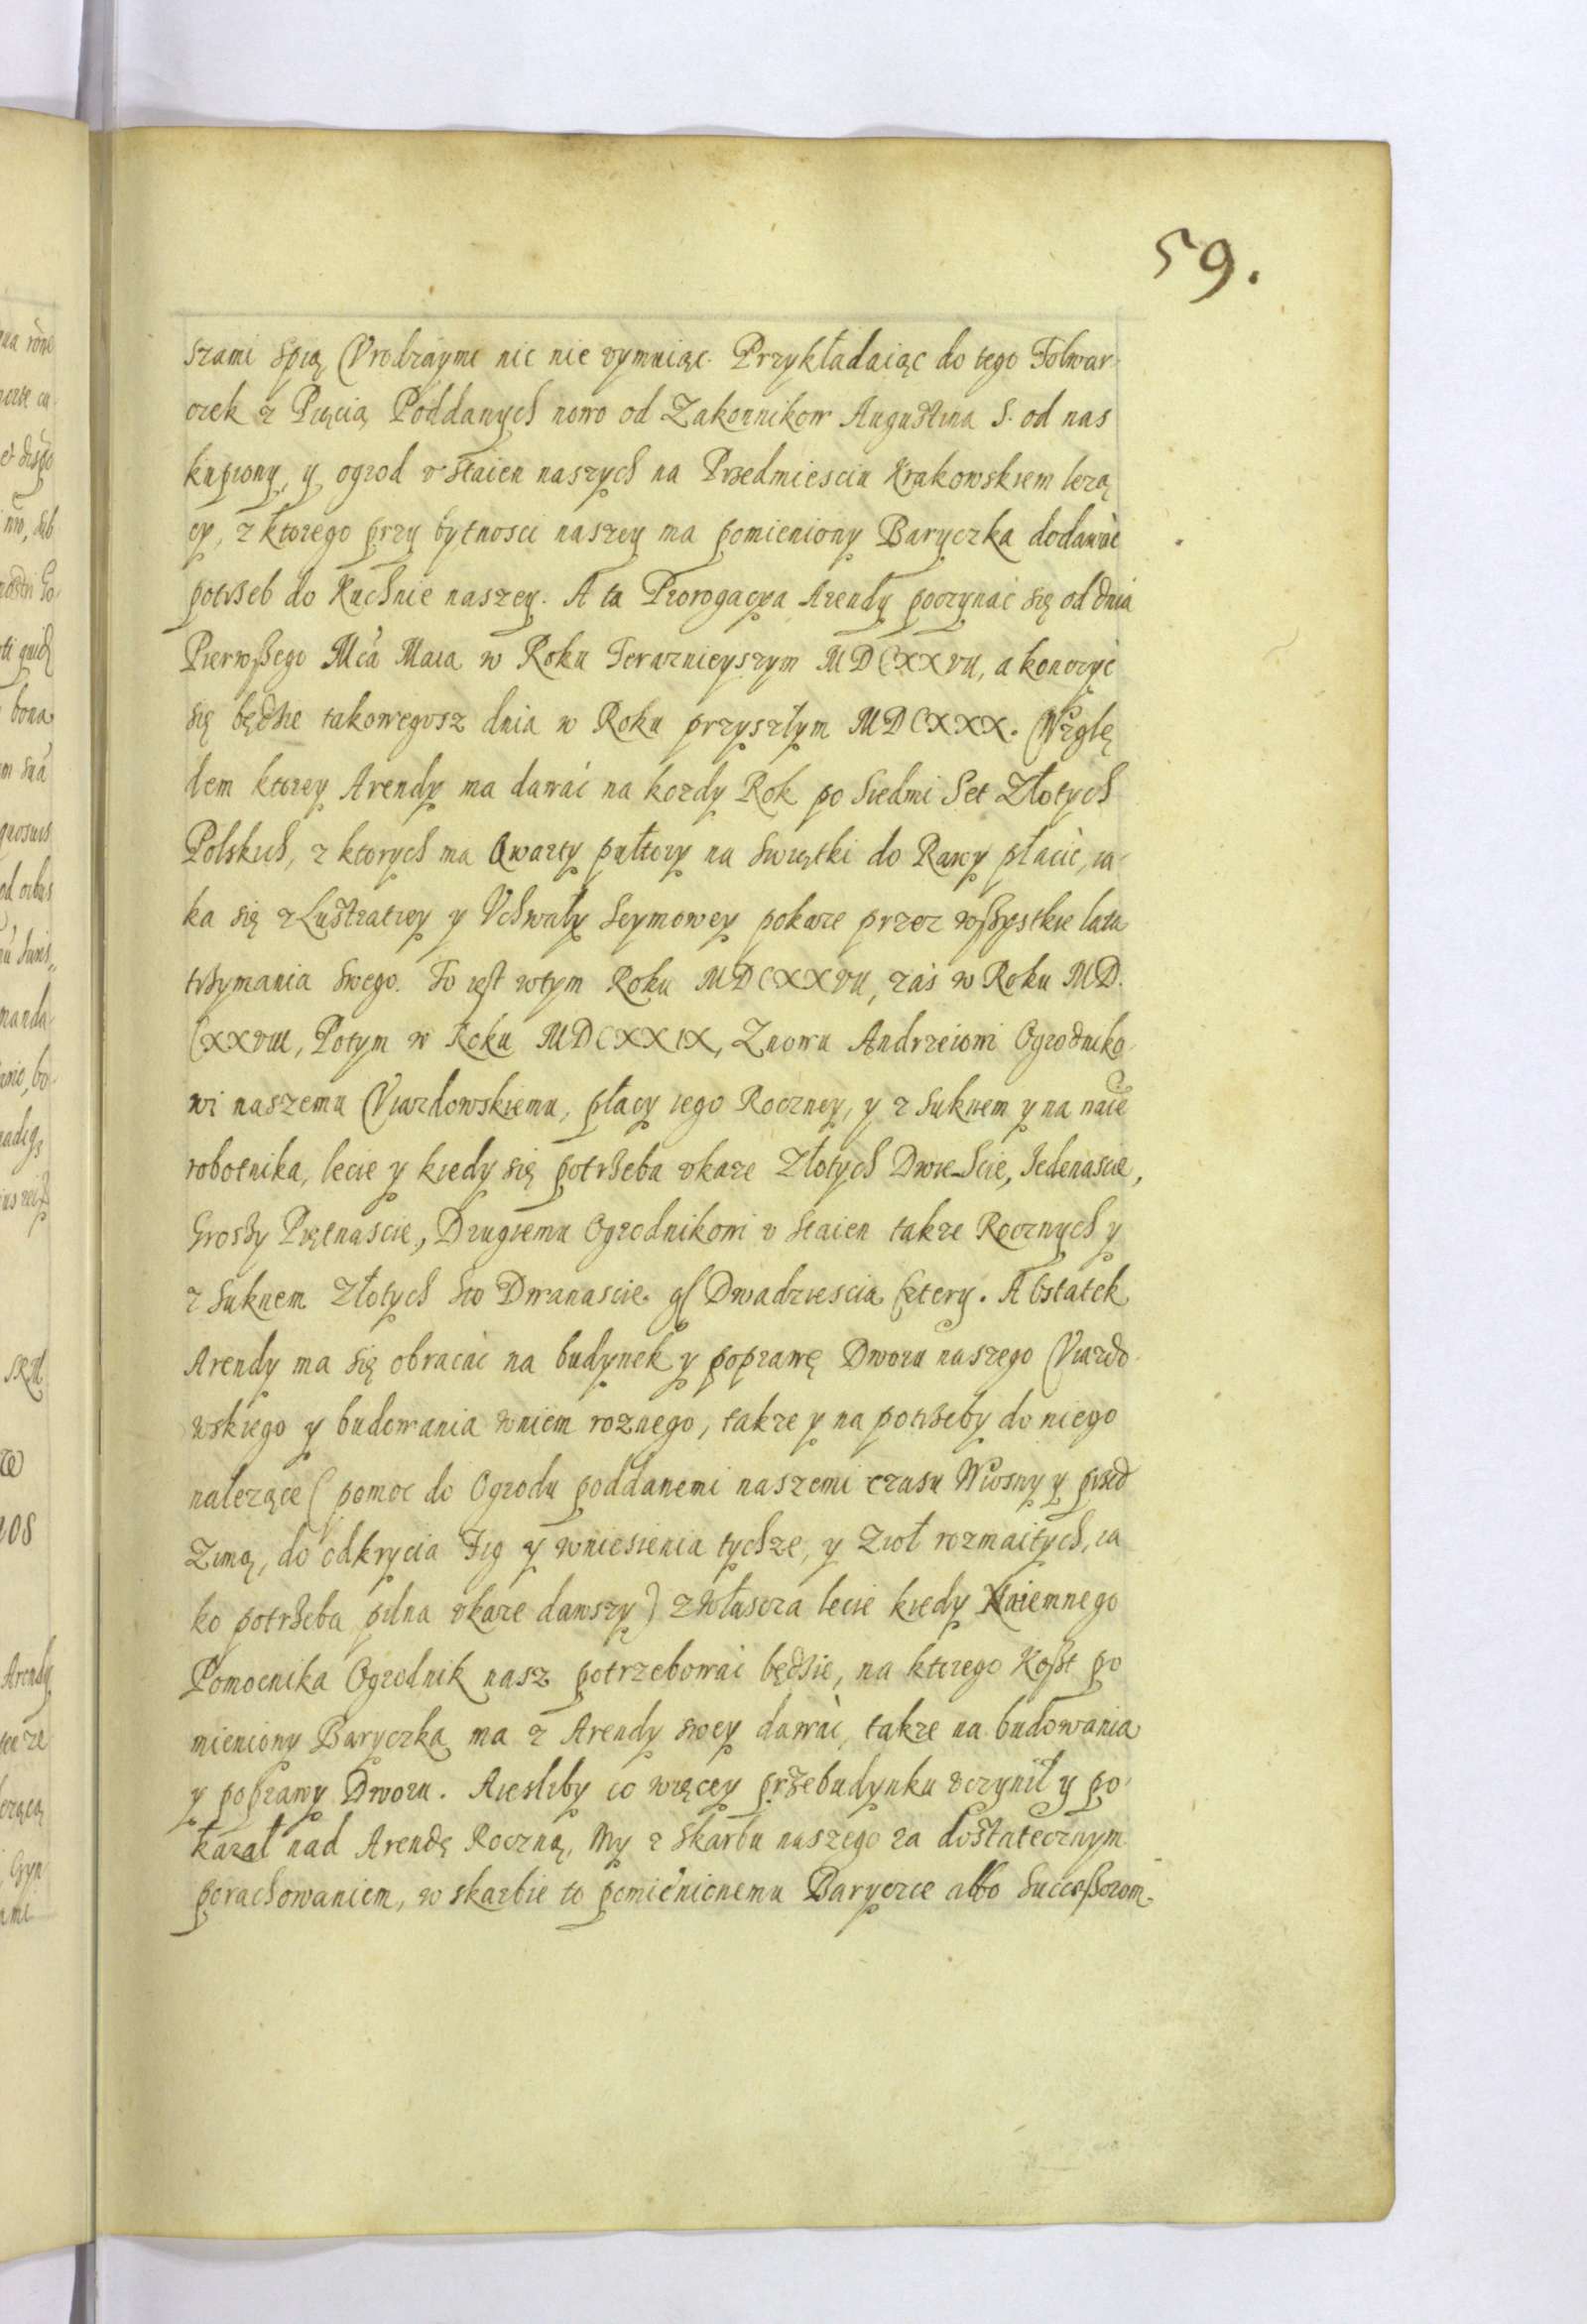 59.
szami Spią Vrodzaymi nic nie vymuiąc. Przykładaiąc do tego Folwar-
czek z Pięcią Poddanych nowo od Zakonnikow Augustina S. od nas
kupiony, y ogrod v staien naszych na Przedmiesciu Krakowskiem lezą
cy, z ktorego przy bytnosci naszey ma pomieniony Baryczka dodawac
potrzeb do Kuchnie naszey. A ta Prorogacya Arendy poczynać się od dnia
Pierwszego Mca Maia w Roku Teraznieyszym MDCXXVII, a konczyć
się będzie takowegosz dnia w Roku przyszłym MDCXXX. Wzglę
dem ktorey Arendy ma dawać na kozdy Rok po Siedmi Set Złotych
Polskich, z ktorych ma Qwarty pułtory na Swiątki do Rawy płacic, ia-
ka się z Lustratiey y Vchwały Seymowey pokaze przez wszystkie lata
trzymania Swego. To iest wtym Roku MDCXXVII, zaś w Roku MD.
CXXVIII, Potym w Roku MDCXXIX, Znowu Andrzeiowi Ogrodniko-
wi naszemu Viazdowskiemu, płacy iego Roczney, y z Suknem y na
robotnika, lecie y kiedy się potrzeba vkaze Złotych Dwie Scie, Jedenascie,
Groszy Piętnascie, Drugiemu Ogrodnikowi v staien takze Rocznych y
z Suknem Złotych Sto Dwanascie gł Dwadziescia Cztery. A Ostatek
Arendy ma się obracać na budynek y poprawę Dworu naszego Viazdo-
wskiego y budowania wniem roznego, takze y na potrzeby do niego
nalezące (pomoc do Ogrodu poddanemi naszemi czasu Wiosny y przed
Zimą, do odkrycia Fig y wniesienia tychze, y Zioł rozmaitych, ia
ko potrzeba pilna vkaze dawszy) zwłascza lecie kiedy Naiemnego
Pomocnika Ogrodnik nasz potrzebowai będzie, na ktorego Koszt po
mieniony Baryczka ma z Arendy swey dawać, takze na budowania
y poprawy Dworu. Aiesliby co więcey przebudynku vczynił y po-
kazał nad Arendę Roczną, My z Skarbu naszego za dostatecznym
porachowaniem, w skarbie to pomienionemu Baryczce albo Successorom-